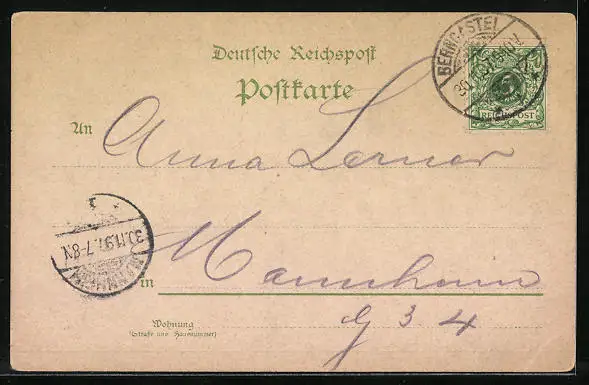 Deutsche Reichspost
Postkarte
BERNCASTEL
30
5
REICHSPOST
An Anna Lerner
30.11.97. 7-8N.
MANNHEIM
in Mannheim
G 3 4
Wohnung
(Straße und Hausnummer)